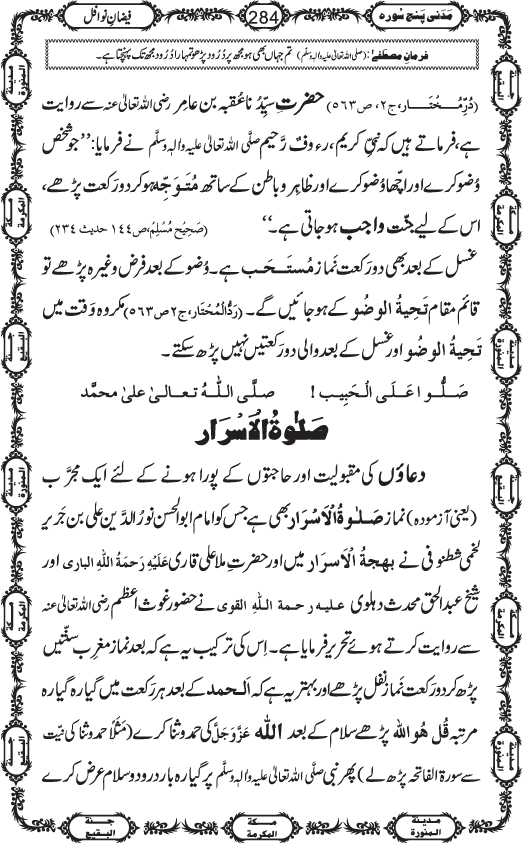 مَدَنی پنج سورہ
284
فیضانِ نوافل
فرمانِ مصطفےٰ : (صلی اللہ تعالیٰ علیہ والہٖ وسلم) تم جہاں بھی ہو مجھ پر دُرُود پڑھو تمہارا دُرُود مجھ تک پہنچتا ہے۔
(دُرِّمُختَار، ج۲، ص۵۶۳) حضرتِ سیِّدُنا عُقبہ بن عامِر رضی اللہ تعالیٰ عنہ سے روایت
ہے، فرماتے ہیں کہ نبیِّ کریم، رءُوفٌ رَّحیم صلَّی اللہ تعالیٰ علیہ واٰلہٖ وسلَّم نے فرمایا: ’’جو شخص
وُضو کرے اور اچّھا وُضو کرے اور ظاہِر و باطِن کے ساتھ مُتَوَجِّہ ہو کر دو رَکعت پڑھے،
اس کے لیے جنّت واجب ہو جاتی ہے۔‘‘ (صَحِیْح مُسْلِم، ص۱۴۴ حدیث ۲۳۴)
غسل کے بعد بھی دو رَکعت نَماز مُستَحَب ہے۔ وُضو کے بعد فرض وغیرہ پڑھے تو
قائم مقام تَحِیۃُ الوضو کے ہو جائیں گے۔ (رَدُّالمُحْتار، ج۲ ص۵۶۳) مکروہ وَقت میں
تَحِیۃُ الوضُو اور غسل کے بعد والی دو رَکعتیں نہیں پڑھ سکتے۔
صَلُّوا عَلَی الْحَبِیب! صلَّی اللہُ تعالیٰ علیٰ محمَّد
صَلٰوۃُ الْاَسْرَار
دعاؤں کی مقبولیت اور حاجتوں کے پورا ہونے کے لئے ایک مجرَّب
(یعنی آزمودہ) نَماز صَلٰوۃُ الْاَسْرَار بھی ہے جس کو امام ابو الحسن نورُ الدّین علی بن جَریر
لخمی شطنوفی نے بهجةُ الْاَسرَار میں اور حضرتِ ملّا علی قاری عَلَیْهِ رَحمَةُ اللہِ الباری اور
شیخ عبدالحق محدث دہلوی علیه رحمة اللہِ القوی نے حضور غوثِ اعظم رضی اللہ تعالیٰ عنہ
سے روایت کرتے ہوئے تحریر فرمایا ہے۔ اِس کی ترکیب یہ ہے کہ بعد نَمازِ مغرِب سنّتیں
پڑھ کر دو رَکعت نَماز نَفل پڑھے اور بہتر یہ ہے کہ اَلحمد کے بعد ہر رَکعت میں گیارہ گیارہ
مرتبہ قُل هُوَ اللہ پڑھے سلام کے بعد اللہ عَزَّوَجَلَّ کی حمد و ثنا کرے (مَثَلًا حمد و ثنا کی نیّت
سے سورۃ الفاتحہ پڑھ لے) پھر نبی صلَّی اللہ تعالیٰ علیہ واٰلہٖ وسلَّم پر گیارہ بار درود و سلام عرض کرے
مدینۃ المنورۃ
مکۃ المکرمۃ
جنۃ البقیع
جنۃ البقیع
مکۃ المکرمۃ
مدینۃ المنورۃ
مدینۃ المنورۃ
جنۃ البقیع
مکۃ المکرمۃ
مکۃ المکرمۃ
جنۃ البقیع
مدینۃ المنورۃ
مدینۃ المنورۃ
مکۃ المکرمۃ
جنۃ البقیع